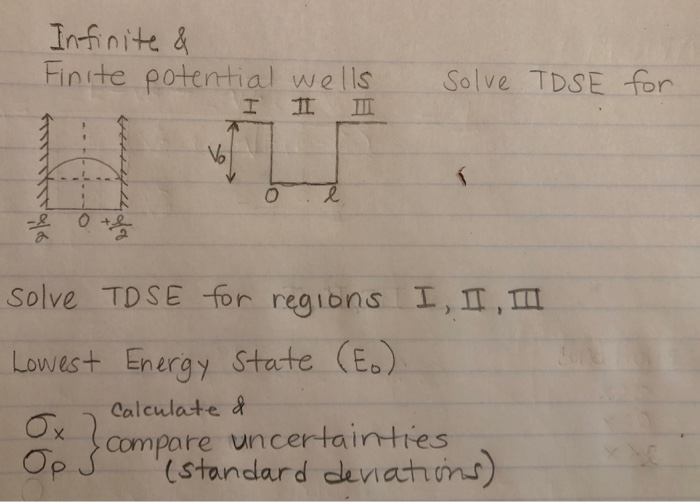 Infinite &
Finite potential wells Solve TDSE for
I II III
V₀
0 l
-l/2 0 +l/2
Solve TDSE for regions I, II, III
Lowest Energy State (E₀)
σx } Calculate &
σp } compare uncertainties
(standard deviations)